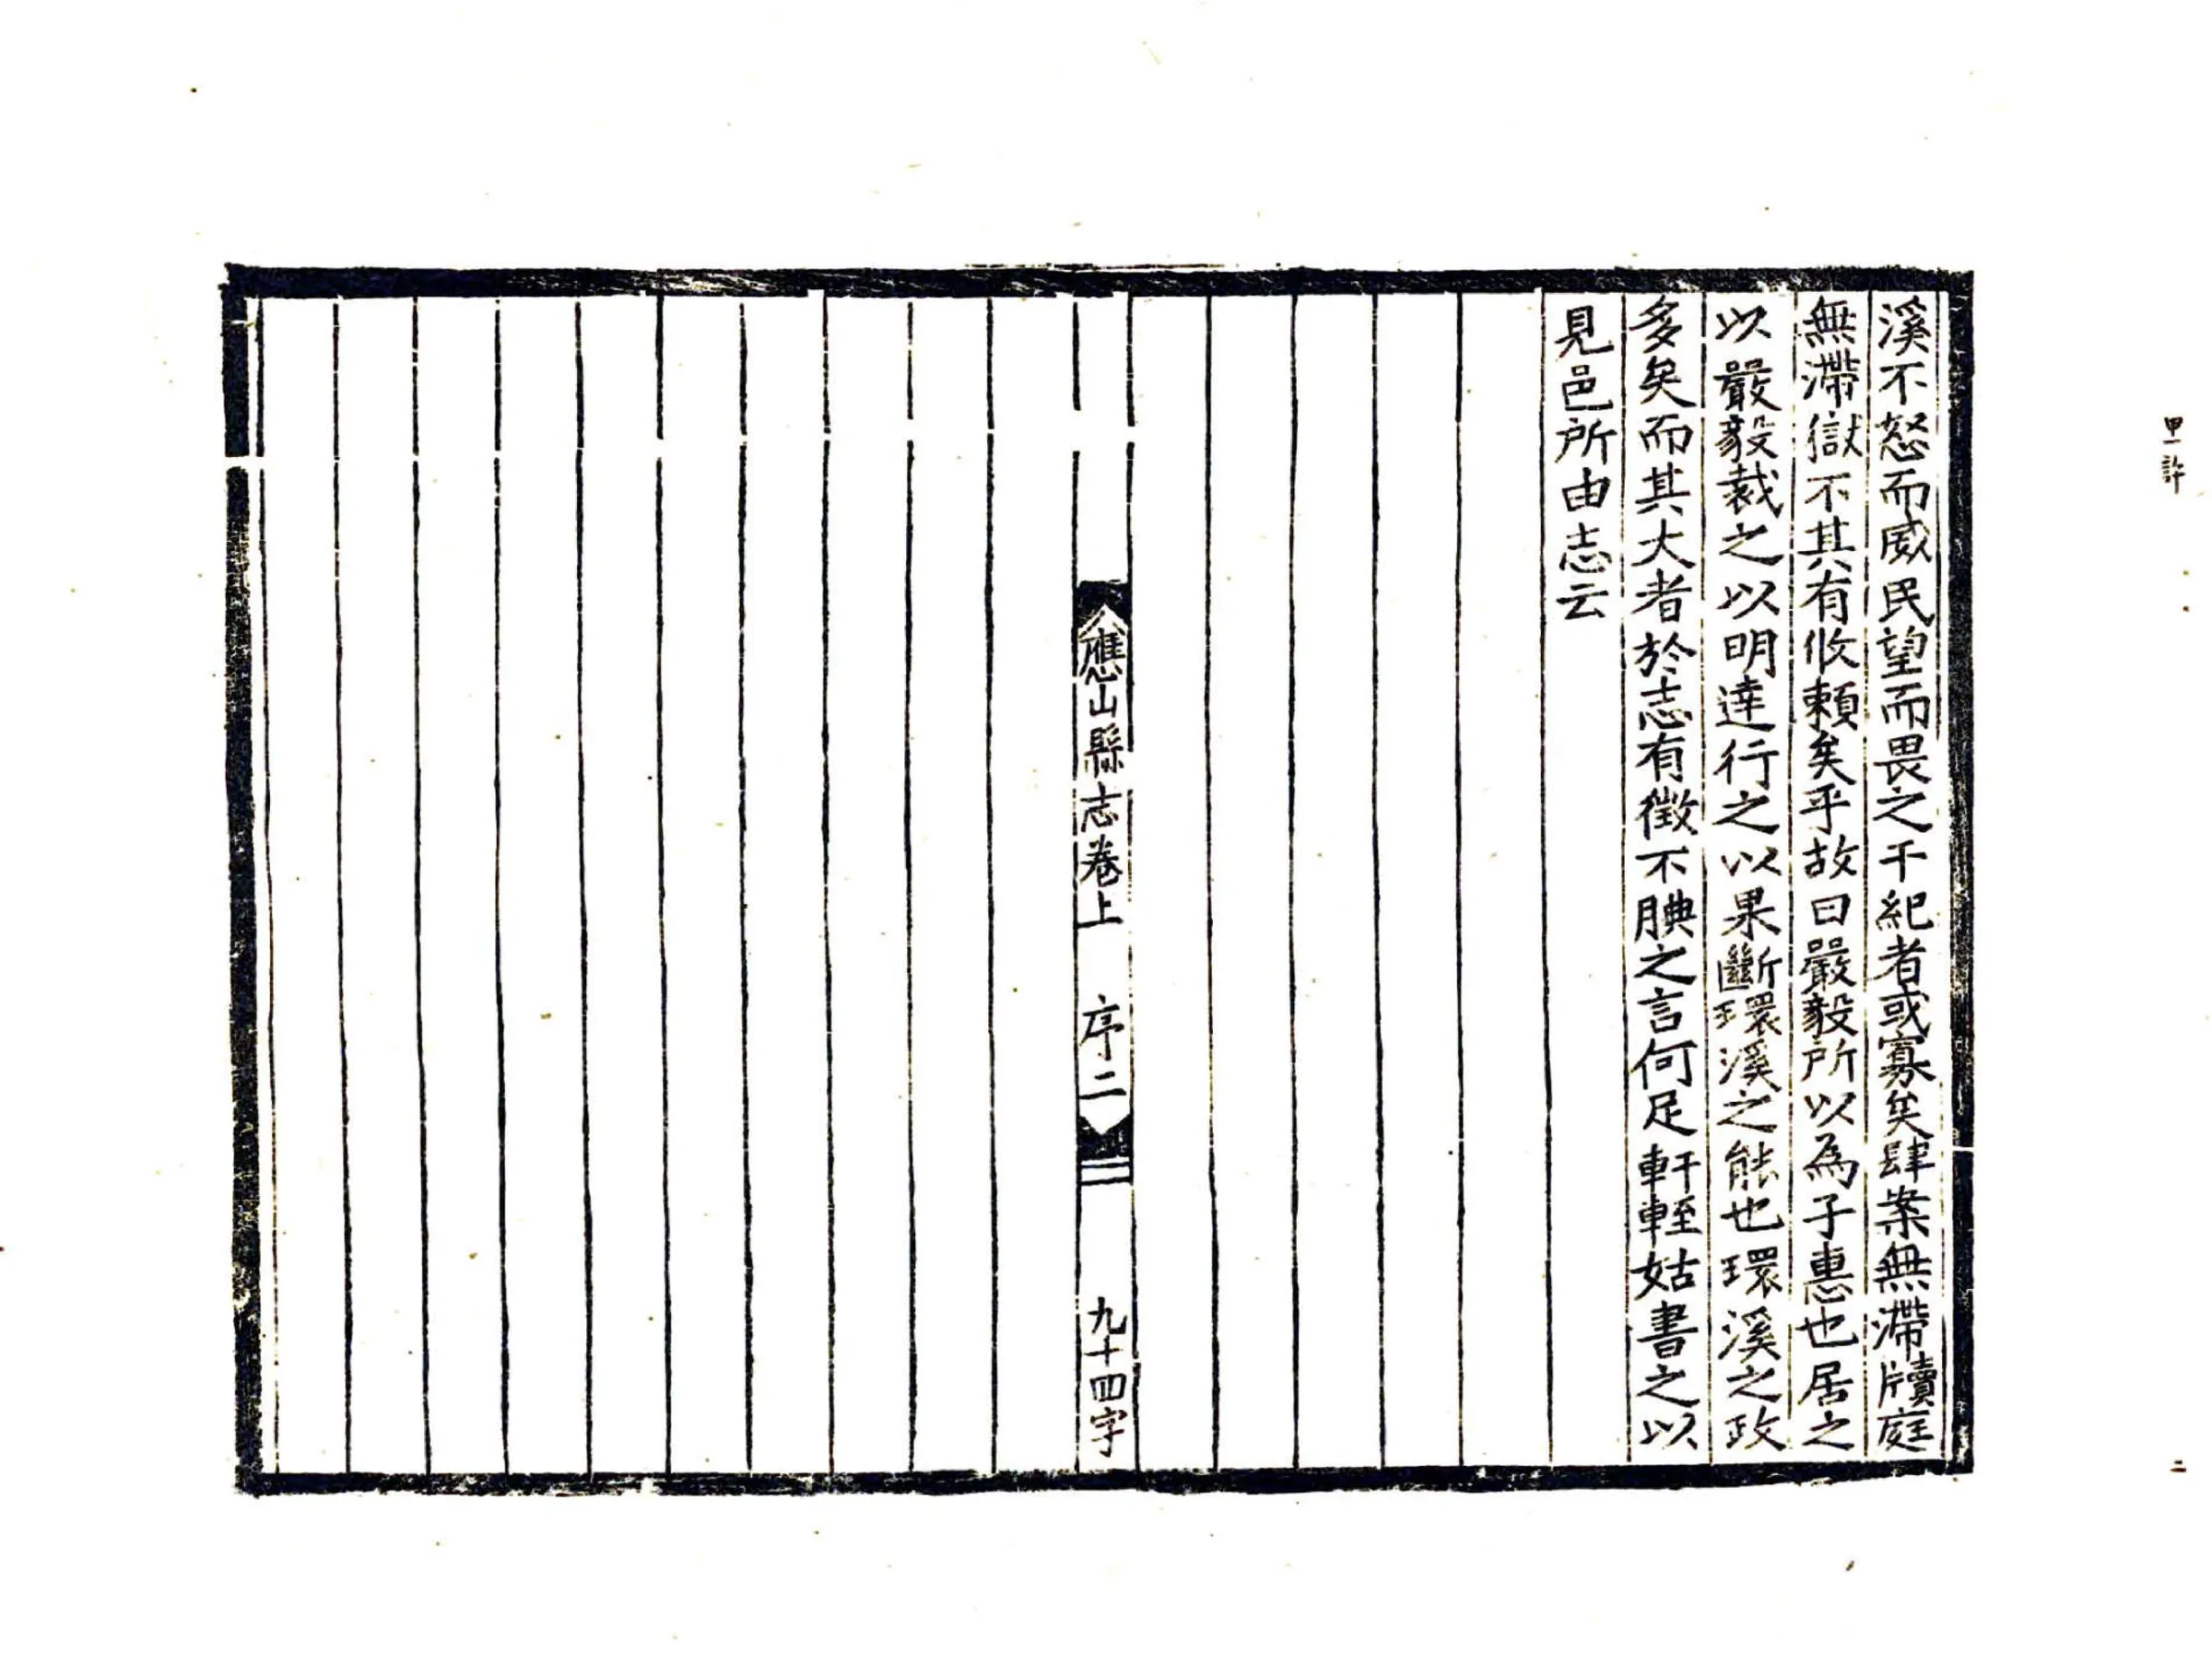 溪不怒而威民望而畏之干紀者或寡矣肆案無滯牘庭
無滯獄不其有攸賴矣乎故曰嚴毅所以為子惠也居之
以嚴毅裁之以明達行之以果斷環溪之能也環溪之政
多矣而其大者於志有徵不腆之言何足軒輊姑書之以
見邑所由志云
應山縣志卷上 序二
九十四字